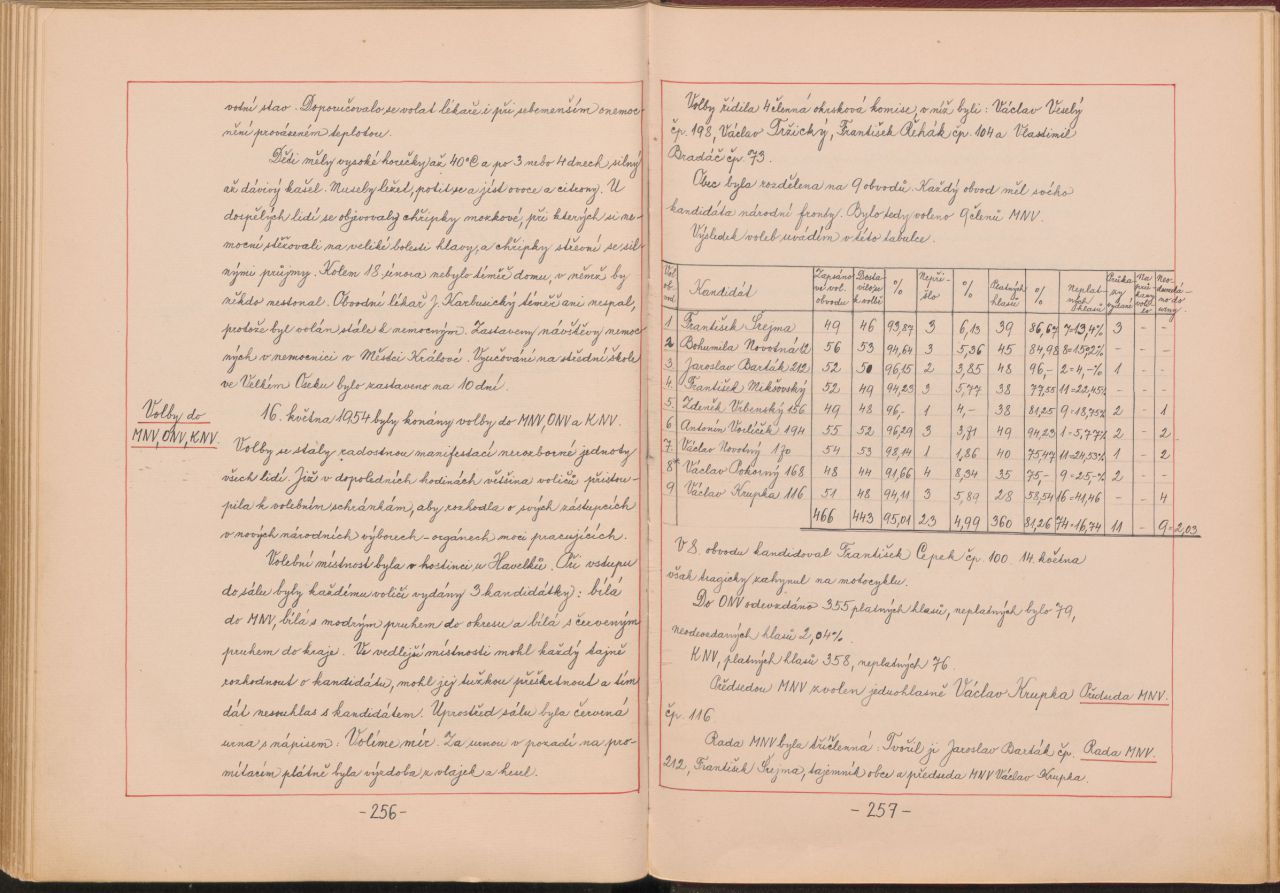 votní stav. Doporučovalo se volat lékaře i při sebemenším onemoc-
nění provázeném teplotou.
Děti měly vysoké horečky až 40°C a po 3 nebo 4 dnech silný
až dávivý kašel. Musely ležet, potit se a jíst ovoce a citrony. U
dospělých lidí se objevovaly chřipky mozkové, při kterých si ne-
mocní stěžovali na veliké bolesti hlavy, a chřipky střevní se sil-
nými průjmy. Kolem 18. února nebylo téměř domu, v němž by
někdo nestonal. Obvodní lékař J. Karbusický téměř ani nespal,
protože byl volán stále k nemocným. Zastaveny návštěvy nemoc-
ných v nemocnici v Městci Králové. Vyučování na střední škole
ve Velkém Oseku bylo zastaveno na 10 dní.
Volby do
MNV, ONV, KNV.
16. května 1954 byly konány volby do MNV, ONV a KNV.
Volby se staly radostnou manifestací nerozborné jednoty
všech lidí. Již v dopoledních hodinách většina voličů přistou-
pila k volebním schránkám, aby rozhodla o svých zástupcích
v nových národních výborech - orgánech moci pracujících.
Volební místnost byla v hostinci u Havelků. Při vstupu
do sálu byly každému voliči vydány 3 kandidátky: bílá
do MNV, bílá s modrým pruhem do okresu a bílá s červeným
pruhem do kraje. Ve vedlejší místnosti mohl každý tajně
rozhodnout o kandidátu, mohl jej tužkou přeškrtnout a tím
dát nesouhlas s kandidátem. Uprostřed sálu byla červená
urna s nápisem: Volíme mír. Za urnou v pozadí na pro-
mítacím plátně byla výzdoba z vlajek a hesel.
-256-
Volby řídila 4členná okrsková komise, v níž byli: Václav Veselý
čp. 198, Václav Tržický, František Řehák čp. 104 a Vlastimil
Bradáč čp. 73.
Obec byla rozdělena na 9 obvodů. Každý obvod měl svého
kandidáta národní fronty. Bylo tedy voleno 9 členů MNV.
Výsledek voleb uvádím v této tabulce.
Vol. obvod Kandidát Zapsáno ve vol. obvodu Dostavilo se k volbě % Nepřišlo % Platných hlasů % Neplatných hlasů Průkazy vydané Na průkazy volilo Neodevzdáno do urny
1 František Šrejma 49 46 93,87 3 6,13 39 86,67 7=13,4% 3 - -
2 Bohumila Novotná 12 56 53 94,64 3 5,36 45 84,98 8=15,02% - - -
3. Jaroslav Barták 212 52 50 96,15 2 3,85 48 96,- 2=4,-% 1 - -
4. František Mikšovský 52 49 94,23 3 5,77 38 77,55 11=22,45% - - -
5. Zdeněk Vrbenský 156 49 48 96,- 1 4,- 38 81,25 9=18,75% 2 - 1
6 Antonín Vorlíček 194 55 52 96,29 3 3,71 49 94,23 1=5,77% 2 - 2
7. Václav Novotný 170 54 53 98,14 1 1,86 40 75,47 11=24,53% 1 - 2
8* Václav Pokorný 168 48 44 91,66 4 8,34 35 75,- 9=25,-% 2 - -
9 Václav Krupka 116 51 48 94,11 3 5,89 28 58,54 16=41,46 - - 4
466 443 95,01 23 4,99 360 81,26 74=16,74 11 - 9=2,03
V 8. obvodu kandidoval František Čepek čp. 100. 14. května
však tragicky zahynul na motocyklu.
Do ONV odevzdáno 355 platných hlasů, neplatných bylo 79,
neodevzdaných hlasů 2,04%.
KNV, platných hlasů 358, neplatných 76.
Předsedou MNV zvolen jednohlasně Václav Krupka Předseda MNV.
čp. 116.
Rada MNV byla tříčlenná: Tvořil ji Jaroslav Barták čp. Rada MNV.
212, František Šrejma, tajemník obce a předseda MNV Václav Krupka.
-257-